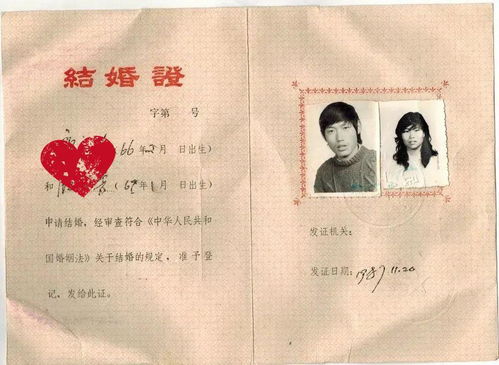 結婚證
字第 号
(66年2月 日出生)
和 (67年1月 日出生)
申请结婚，经审查符合《中华人民共和
国婚姻法》关于结婚的规定，准予登
记，发给此证。
发证机关：
发证日期：1987.11.20